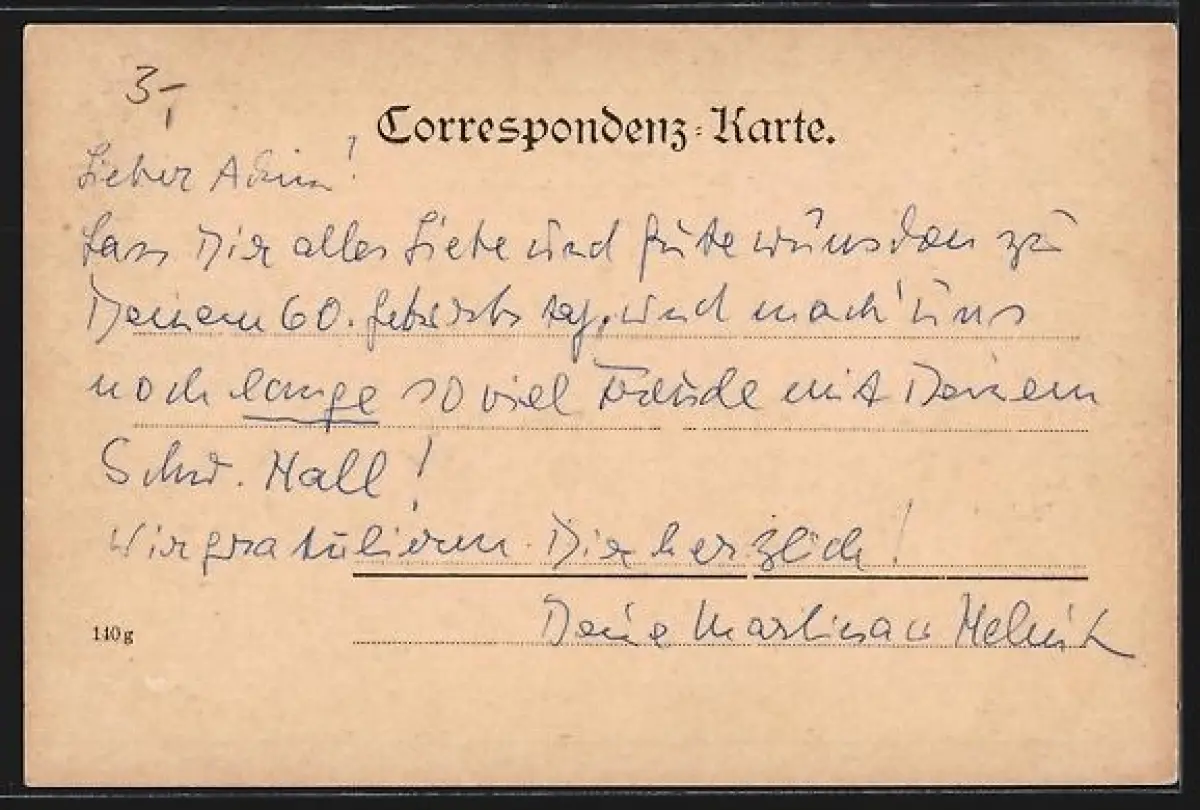 3,-
Correspondenz-Karte.
Lieber Achim!
Lass Dir alles Liebe und Gute wünschen zu
Deinem 60. Geburtstag, und mach' uns
noch lange so viel Freude mit Deinem
Schw. Hall!
Wir gratulieren Dir herzlich!
Deine Martina u Helmut
140g